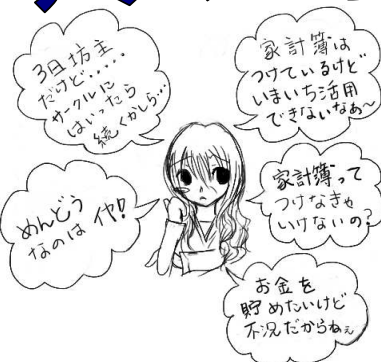 3日坊主
だけど.....
サークルに
はいったら
続くかしら…
家計簿は
つけているけど
いまいち活用
できないなぁ〜
めんどう
なのは イヤ!
家計簿って
つけなきゃ
いけないの?
お金を
貯めたいけど
不況だからねぇ